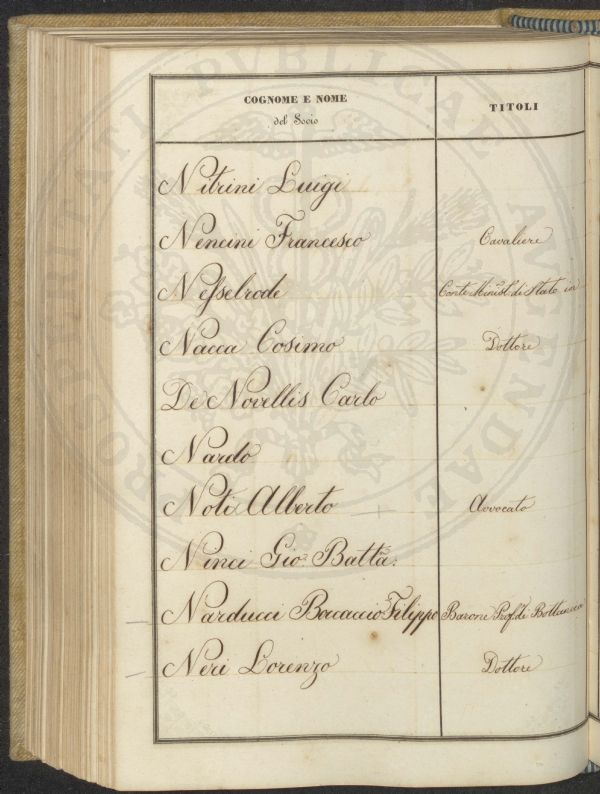 COGNOME E NOME
del Socio
TITOLI
Nitrini Luigi
Nencini Francesco Cavaliere
Nesselrode Conte Minist. di Stato in
Nacca Cosimo Dottore
De Novellis Carlo
Nardo
Noti Alberto Avvocato
Ninci Gio. Batta.
Narducci Boccaccio Filippo Barone Prof. di Bottanica
Neri Lorenzo Dottore
PROSPERITATI PUBLICAE AUGENDAE